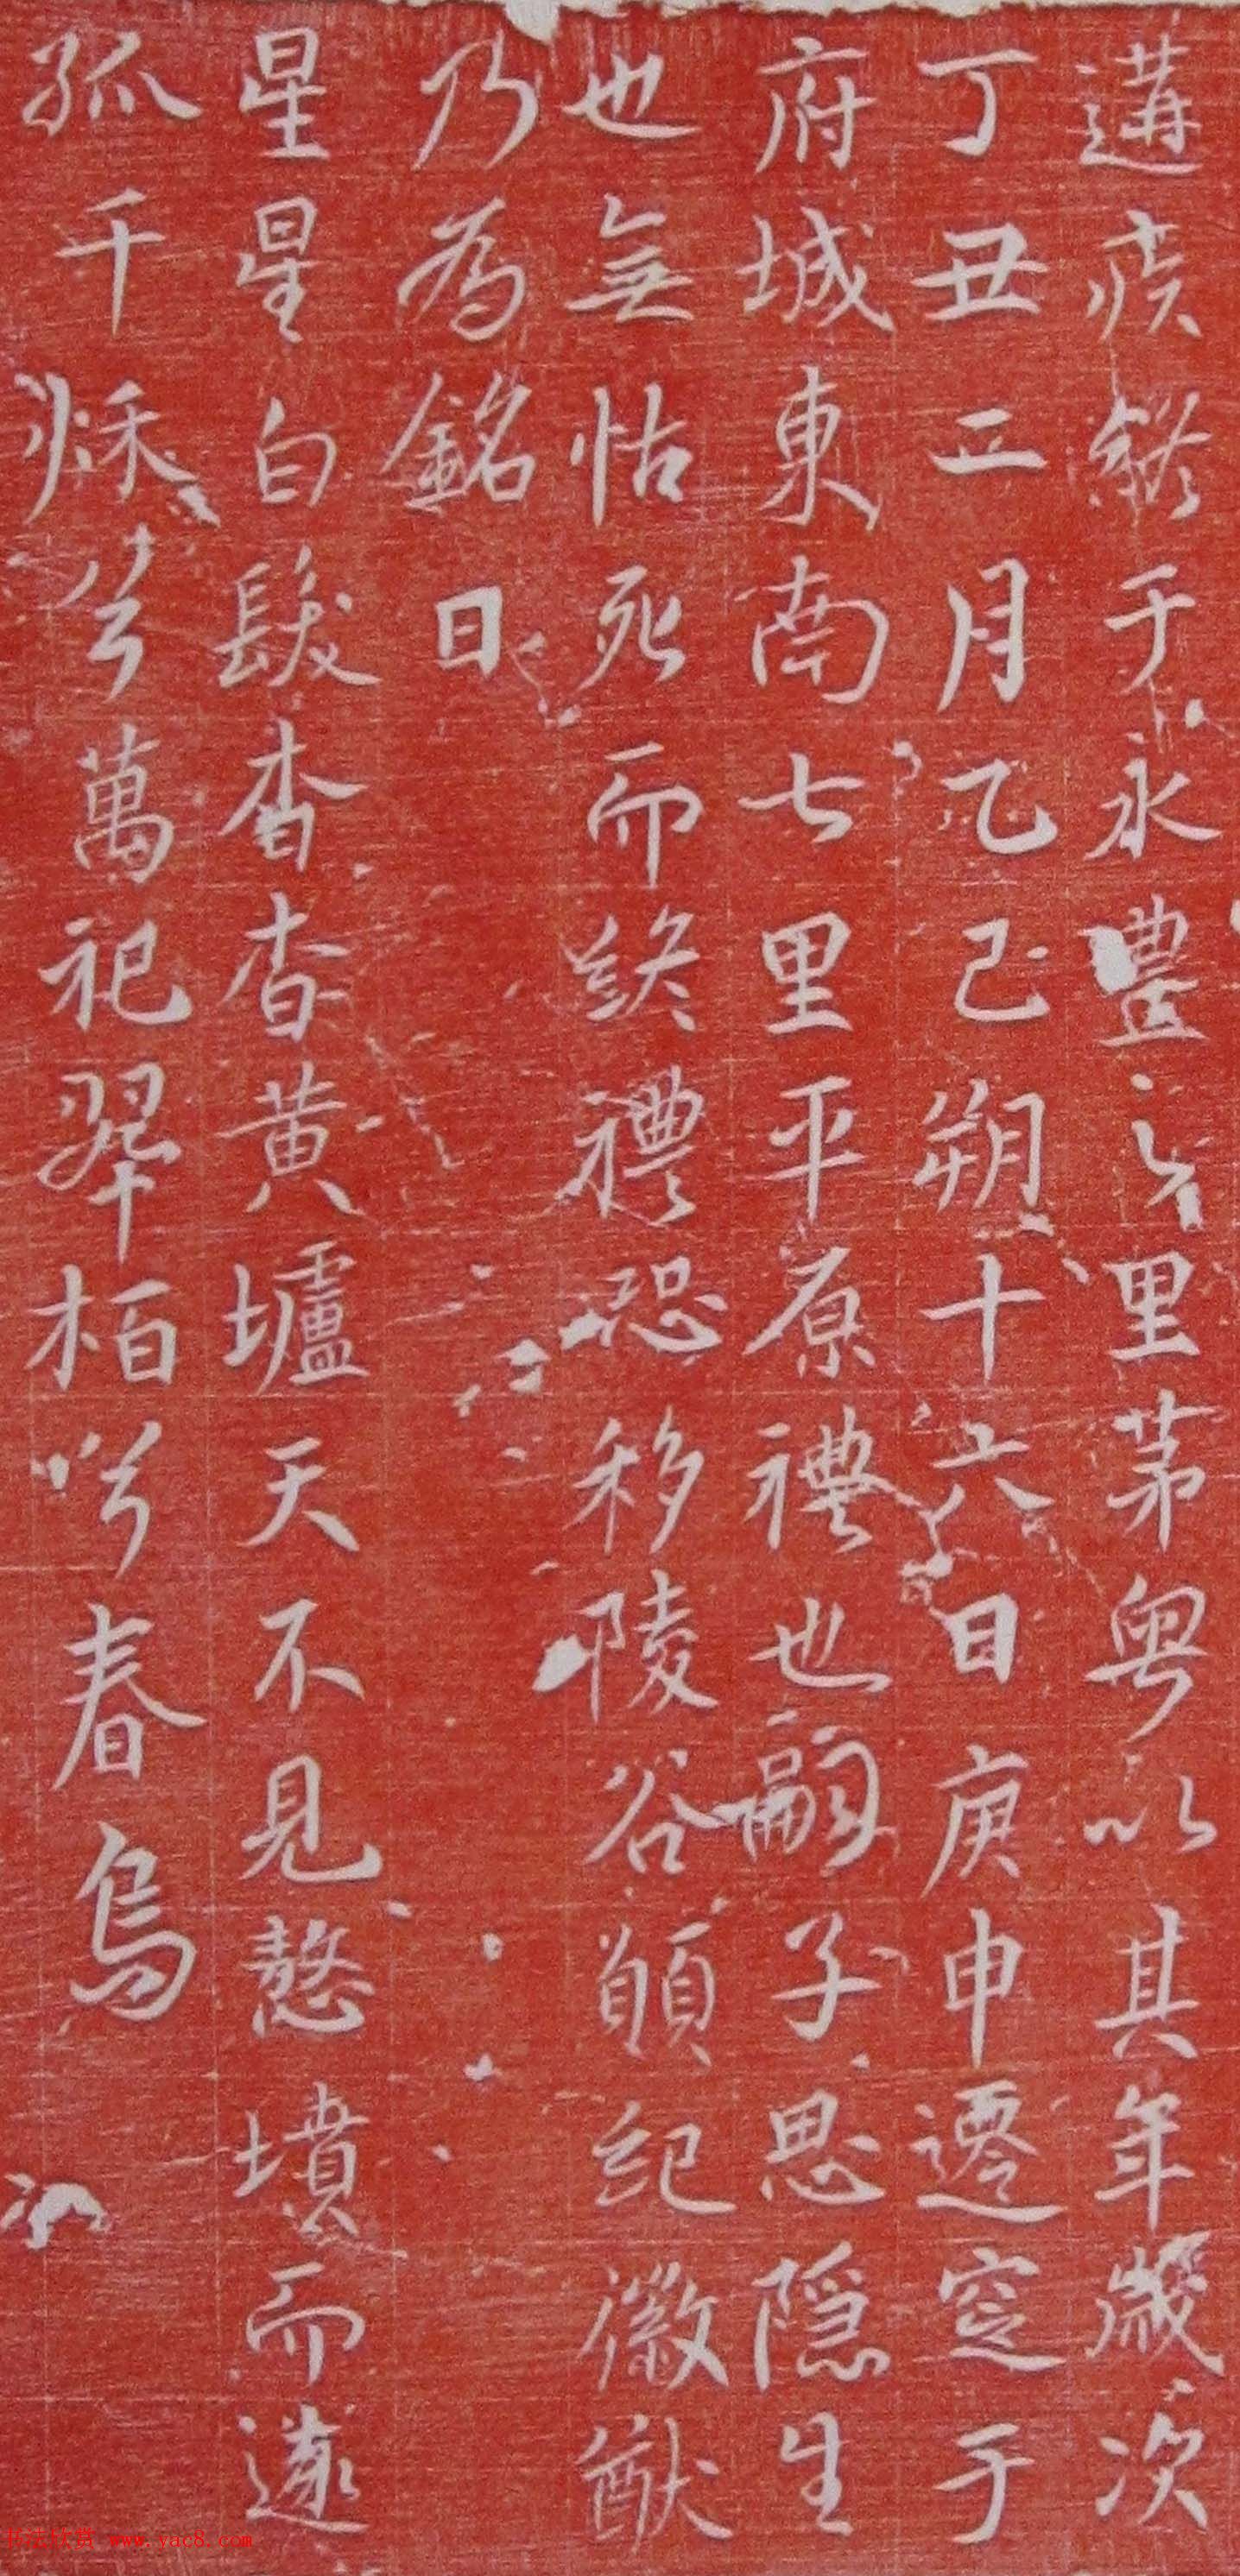 遘疾終于永豐之里茅粤以其年歲次
丁丑正月乙巳朔十六日庚申遷窆于
府城東南七里平原禮也嗣子思隱生
也無怙死而終禮恐移陵谷願紀徽猷
乃為銘曰
星星白髮杳杳黄壚天不見憖墳而遂
孤千秌兮萬祀翠柏兮春烏
书法欣赏 www.yac8.com